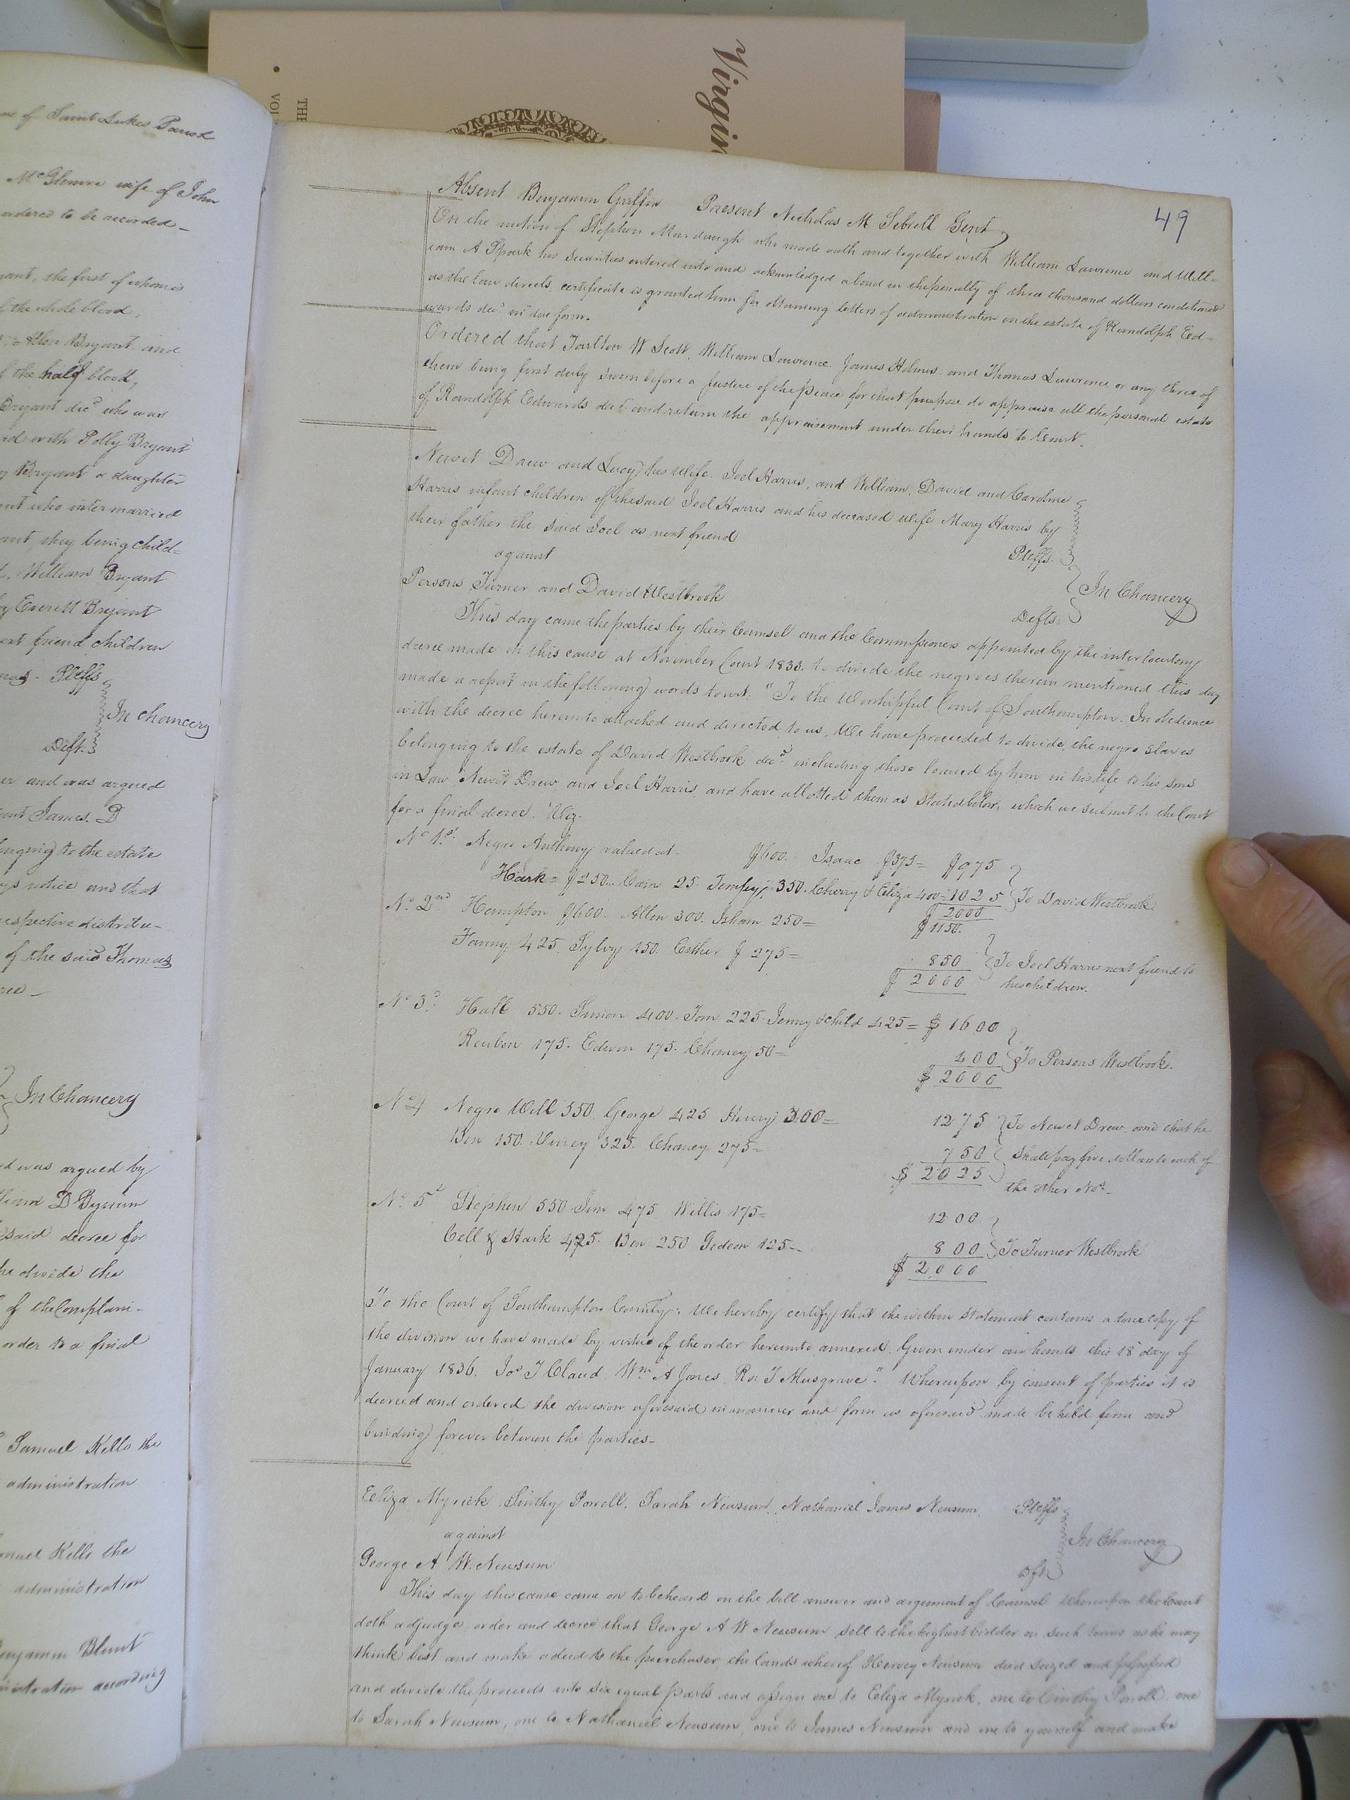 Virgin
TH
VO
ne of Saint Lukes Parish
McGlemre wife of John
ordered to be recorded
yant, the first of whom is
of the whole blood,
Allen Bryant and
of the half blood,
Bryant decd. who was
with Polly Bryant
Bryant a daughter
ant who intermarried
ant, they being child=
William Bryant
by Everett Bryant
next friend children
Pltffs
In chancery
Deft.
er and was argued
James D
belonging to the estate
notice and that
respective distribu-
of the said Thomas
ree
In Chancery
was argued by
D Bynum
said decree for
he divide the
of the Complain-
order to a final
Samuel Kello the
administration
Samuel Kello the
administration
Benjamin Blunt
administration according
49
Absent Benjamin Griffin Present Nicholas M Sebrell Gent
On the motion of Stephen Murdaugh who made oath and together with William Lawrence and Will-
iam A Spark his Securities entered into and acknowledged a bond in the penalty of three thousand dollars conditioned
as the law directs, certificate is granted him for obtaining letters of administration on the estate of Randolph Ed-
wards decd. in due form.
Ordered that Tarlton W Scott, William Lawrence James Holmes and Thomas Lawrence or any three of
them being first duly sworn before a Justice of the peace for that purpose do appraise all the personal estate
of Randolph Edwards decd. and return the appraisement under their hands to Court.
Newit Drew and Lucy his wife, Joel Harris, and William, David and Caroline
Harris infant children of the said Joel Harris and his deceased wife Mary Harris by
their father the said Joel as next friend
Pltffs.
against
In Chancery
Persons Turner and David Westbrook
Defts.
This day came the parties by their Counsel and the Commissioners appointed by the interlocutory
decree made in this cause at November Court 1833. to divide the negroes therein mentioned this day
made a report in the following words to wit. "To the Worshipful Court of Southampton. In obedience
with the decree hereunto attached and directed to us, We have proceeded to divide, the negro Slaves
belonging to the estate of David Westbrook decd. including those loaned by him in his life to his sons
in Law Newit Drew, and Joel Harris, and have allotted them as Stated below, which we submit to the Court
for a final decree. Viz.
No. 1st. Negro Anthony valued at $600. Isaac $375= $975
Hark= $250.. Cain 25 Tempy; 350. Cherry & Eliza 400=1025 To David Westbrook
$2000
No. 2nd Hampton $600. Allen 300. Isham 250= $1150.
Fanny 425 Sylvy 150. Esther $275= 850 To Joel Harris next friend to
$2000 his children.
No. 3d. Hall 550. Simon 400. Tom 225. Jenny & child 425= $1600
Reuben 175. Edwin 175. Chaney 50= 400 To Persons Westbrook.
$2000
No. 4 Negro Will 550 George 425 Henry 300= 1275 To Newit Drew, and that he
Ben 150. Viney 325. Chaney 275= 750 Shall pay five dollars to each of
$2025 the other Nos.
No. 5th Stephen 550 Jim 475 Willis 175= 1200
Cell & Stark 425. Ben 250 Gideon 125= 800 To Turner Westbrook
$2000
"To the Court of Southampton County: We hereby certify that the within Statement contains a true copy of
the division we have made by virtue of the order hereunto annexed. Given under our hands this 18 day of
January 1836. Jos T Claud Wm A Jones Ro. T Musgrave." Whereupon by consent of parties it is
decreed and ordered the division aforesaid in manner and form as aforesaid made be held firm and
binding forever between the parties-
Eeliza Myrick Sinthy Powell, Sarah Newsum, Nathaniel James Newsum Pltffs
against
In Chancery
George A W. Newsum
Dft
This day this cause came on to be heard on the bill answer and argument of Counsel Whereupon the Court
doth adjudge order and decree that George A W Newsum sell to the highest bidder on such terms as he may
think best and make a deed to the purchaser the lands whereof Hervey Newsum died seized and possessed
and divide the proceeds into six equal parts and assign one to Eeliza Myrick, one to Cinthy Powell one
to Sarah Newsum, one to Nathaniel Newsum, one to James Newsum and one to yourself and make